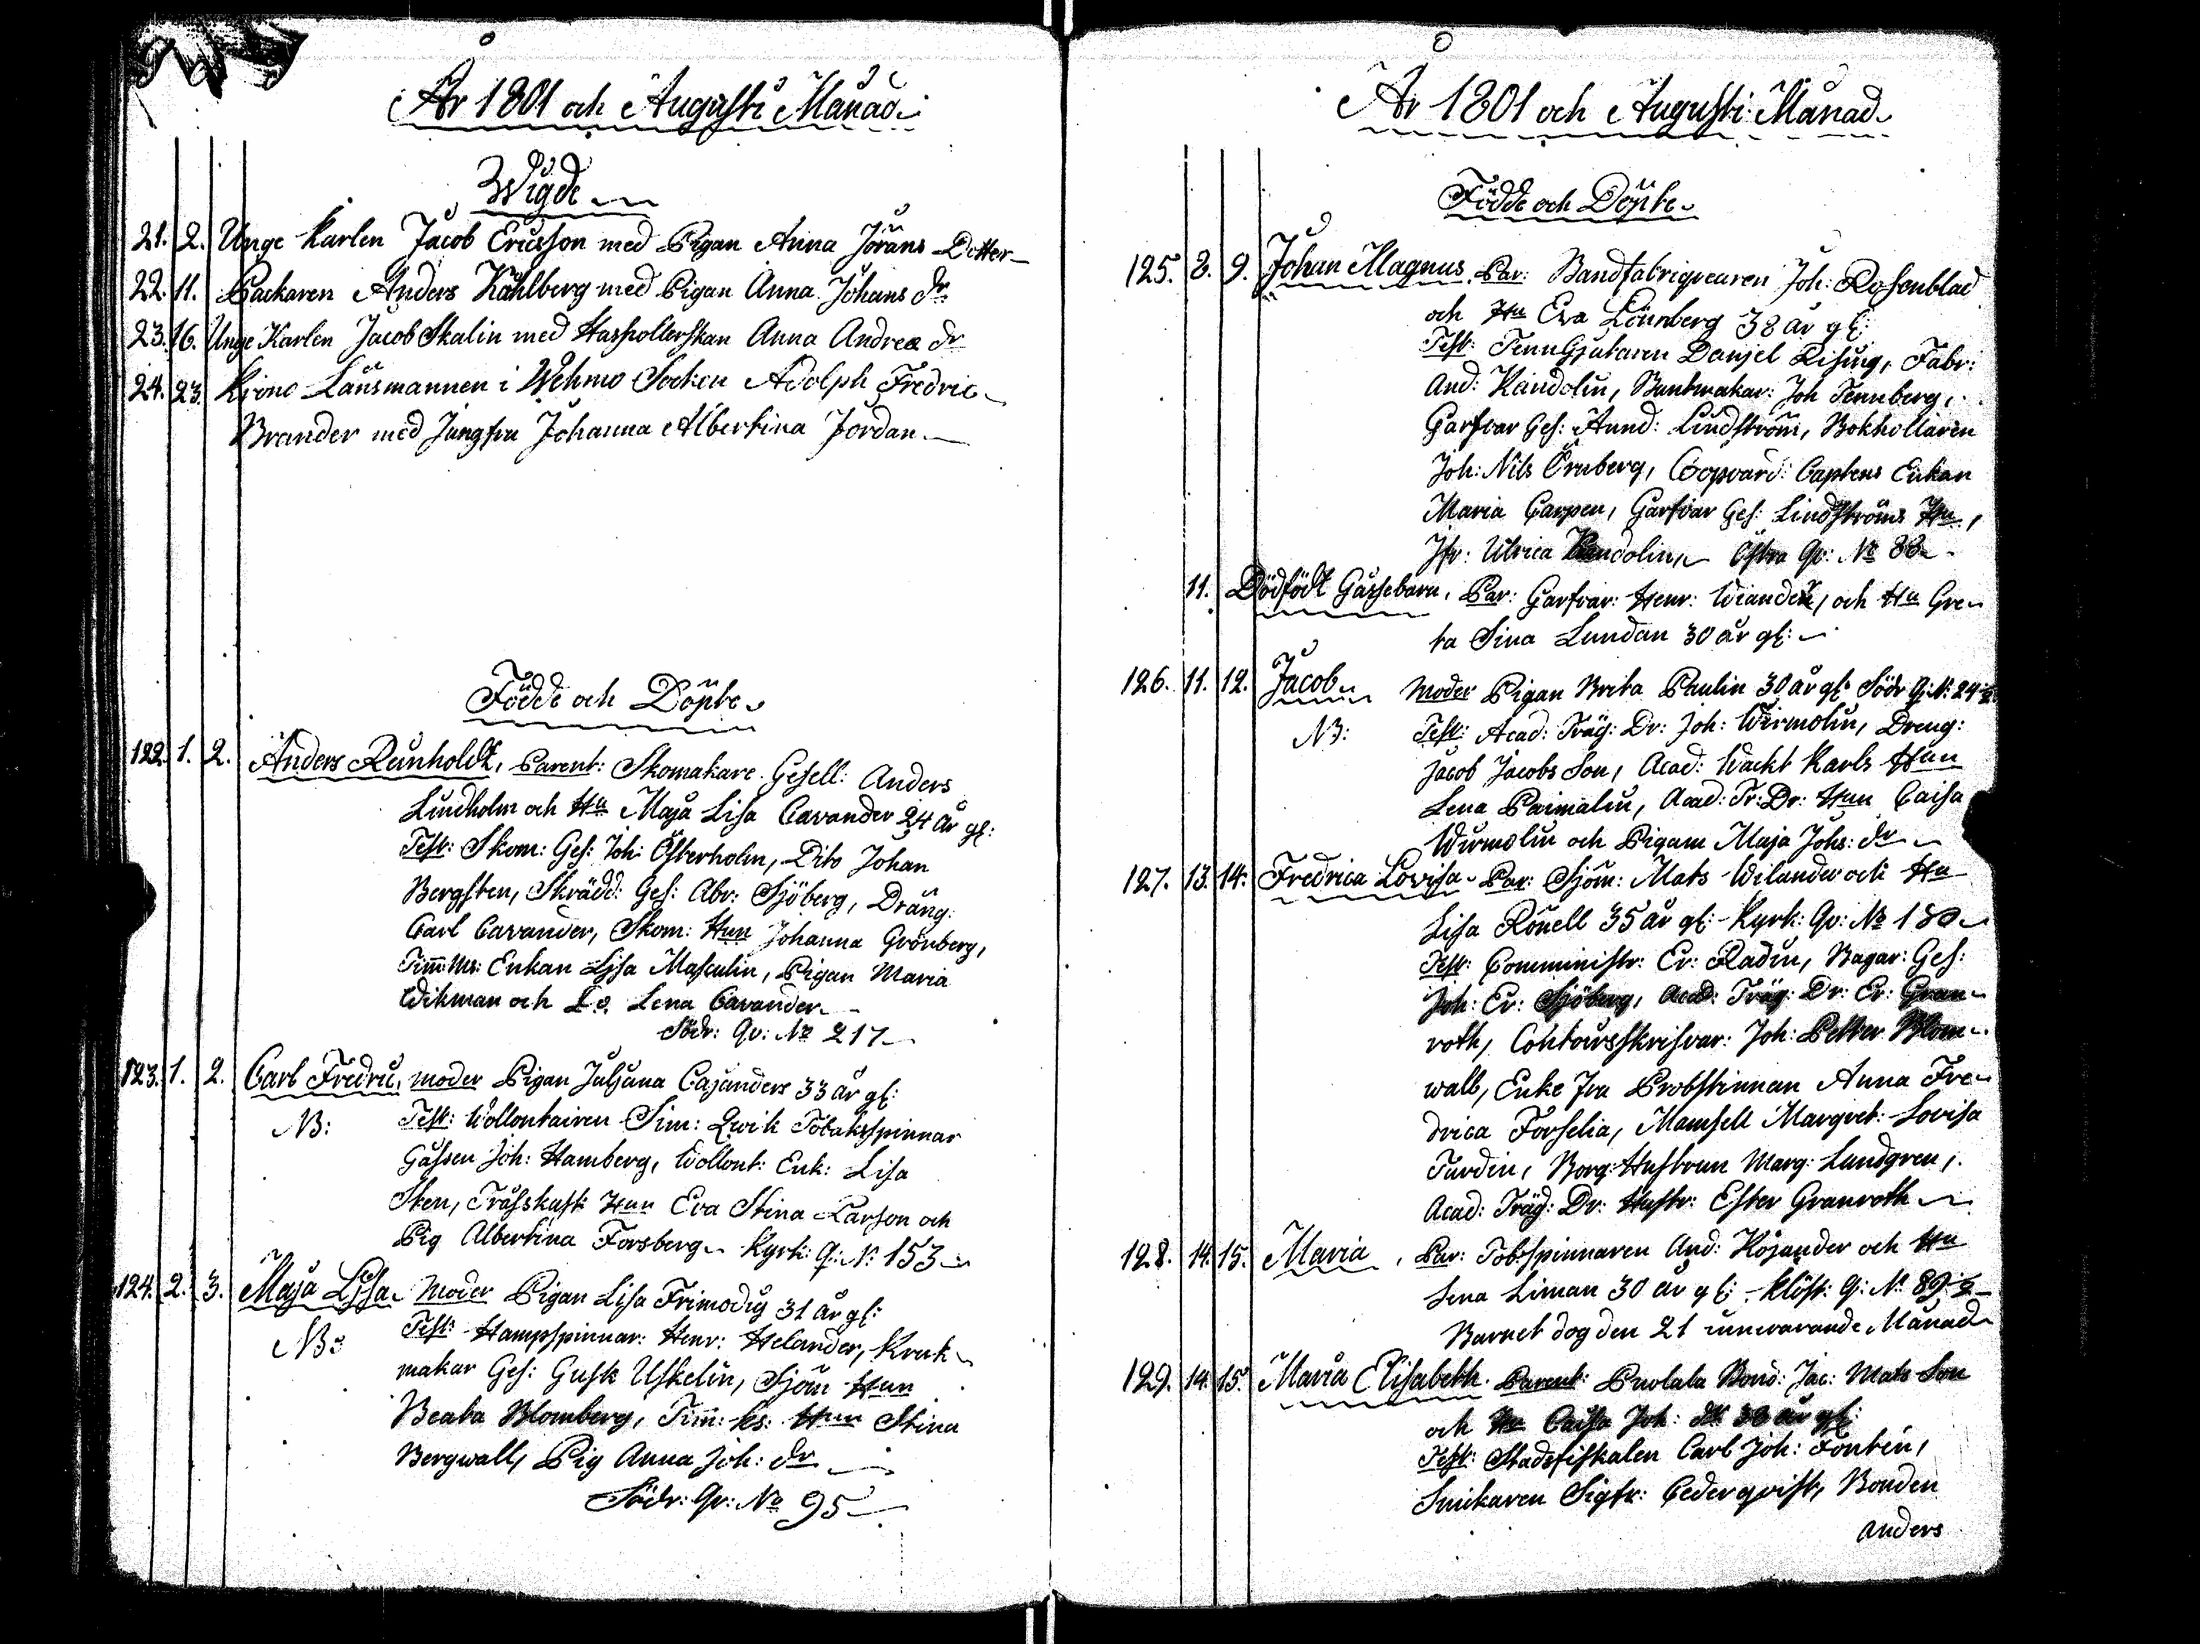 År 1801 och Augusti Månad
Wigde
21. 2. Unge Karlen Jacob Ericsson med Pigan Anna Jörans Dotter
22. 11. Packaren Anders Kåhlberg med Pigan Anna Johans dr
23. 16. Unge Karlen Jacob Skalin med Hushollerskan Anna Andreæ dr
24. 23. Krono Länsmannen i Wehmo Socken Adolph Fredric
Brander med Jungfru Johanna Albertina Jordan
Födde och Döpte
122. 1. 2. Anders Reinholdt, Parent: Skomakare Gesell: Anders
Lindholm och Hu Maja Lisa Cavander 24 år gl:
Test: Skom: Ges: Joh: Österholm, Dito Johan
Bergsten, Skrädd: Ges: Abr: Sjöberg, Dräng:
Carl Cavander, Skom: Hun Johanna Grönberg,
Tim: Ms: Enkan Lisa Masculin, Pigan Maria
Wikman och Do Lena Cavander
Södr: Qv: No 217
123. 1. 2. Carl Fredric, moder Pigan Juljana Cajanders 33 år gl:
NB: Test: Wollontairen Sim: Qwik Tobaksspinnar
Gåssen Joh: Hamberg, Wollont: Enk: Lisa
Sten, Eva Stina Larson och
Pig Albertina Forsberg Kyrk: Q: No 153
124. 2. 3. Maja Lisa Moder Pigan Lisa Frimodig 31 år gl:
NB: Test: Hampspinnar: Henr: Helander, Kruk
makar Ges: Gust: Uskelin, Sjöm Hun
Beata Blomberg, Tim: ks: Hun Stina
Bergwall, Pig Anna Joh: dr
Södr: Qv: No 95
År 1801 och Augusti Månad
Födde och Döpte
125. 8. 9. Johan Magnus Par: Bandfabriqvearen Joh: Rosenblad
och Hu Eva Lönnberg 38 år gl:
Test: TennGjutaren Danjel Rising, Fabr:
And: Kandolin, Buntmakar: Joh Tennberg,
Garfvar Ges: Annd: Lindström, Bokhollaren
Joh: Nils Örnberg, Coopvard: Captens Enkan
Maria Carpen, Garfvar Ges: Lindströms Hu,
Jfr: Ulrica Kandolin, Östra Qv: No 88
11. Dödfödt Gåssebarn, Par: Garfvar: Henr: Wianden, och Hu Gre
ta Stina Lundan 30 år gl:
126. 11. 12. Jacob Moder Pigan Brita Paulin 30 år gl: Södr Q: N: 24
NB: Test: Acad: Träg: Dr: Joh: Wirmolin, Dreng:
Jacob Jacobs Son, Acad: Wackt Karls Hun
Lena Paimalin, Acad: Tr: Dr: Hun Caisa
Wirmolin och Pigan Maja Johs: dr
127. 13. 14. Fredrica Lovisa Par: Sjöm: Mats Wilander och Hu
Lisa Rönell 35 år gl: Kyrk: Qv: No 180
Test: Comministr: Er: Radin, Bagar: Ges:
Joh: Er: Sjöberg, Acad: Träg: Dr: Er: Gran
roth, Contoirsskrifvar: Joh: Petter Blom
wall, Enke Fru Probstinnan Anna Fre
drica Forselia, Mamsell Margret: Lovisa
Turdin, Borg: Hustrun Marg: Lundgren,
Acad: Träg: Dr: Hustr: Ester Granroth
128. 14. 15. Maria, Par: Tob:spinnaren And: Höjander och Hu
Lena Liman 30 år gl: Klöst: Q: No 89
Barnet dog den 21 innevarande Månad
129. 14. 15. Maria Elisabeth. Parent: Puolala Bond: Jac: Mats Son
och Hu Caisa Joh: dr år gl:
Test: Stadsfiskalen Carl Joh: Fontin,
Snickaren Sigfr: Cederqvist, Bonden
Anders